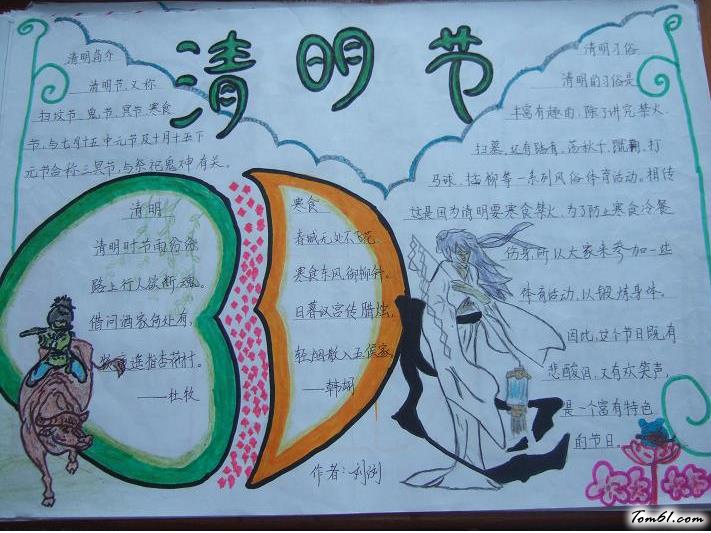 清明节
清明简介
清明节又称
扫坟节、鬼节、冥节、寒食
节，与七月十五中元节及十月十五下
元节合称三冥节，与祭祀鬼神有关。
清明
清明时节雨纷纷，
路上行人欲断魂。
借问酒家何处有，
牧童遥指杏花村。
——杜牧
寒食
春城无处不飞花，
寒食东风御柳斜。
日暮汉宫传腊烛，
轻烟散入五侯家。
——韩翃
作者：刘浏
清明习俗
清明的习俗是
丰富有趣的，除了讲究禁火、
扫墓，还有踏青、荡秋千、蹴鞠、打
马球、插柳等一系列风俗体育活动。相传
这是因为清明要寒食禁火，为了防止寒食冷餐
伤身，所以大家来参加一些
体育活动，以锻炼身体。
因此，这个节日既有
悲酸泪，又有欢笑声，
是一个富有特色
的节日。
Tom61.com